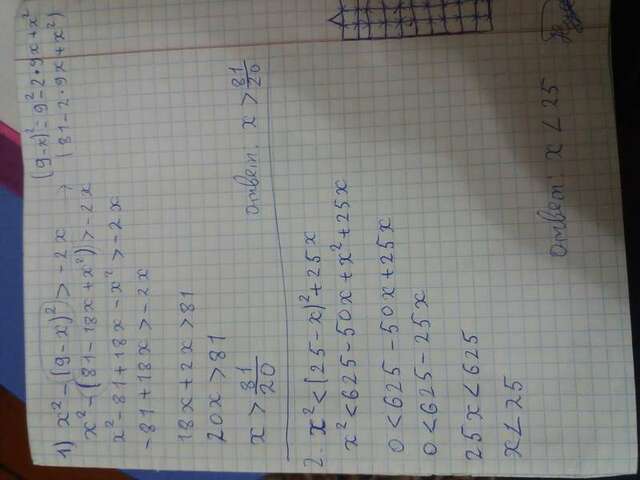 1) x² - (9-x)² > -2x → (9-x)² = 9² - 2·9x + x²
(81 - 2·9x + x²)
x² - (81 - 18x + x²) > -2x
x² - 81 + 18x - x² > -2x
-81 + 18x > -2x
18x + 2x > 81
20x > 81
x > 81/20 ответ: x > 81/20
2. x² < (25-x)² + 25x
x² < 625 - 50x + x² + 25x
0 < 625 - 50x + 25x
0 < 625 - 25x
25x < 625
x < 25
ответ: x < 25